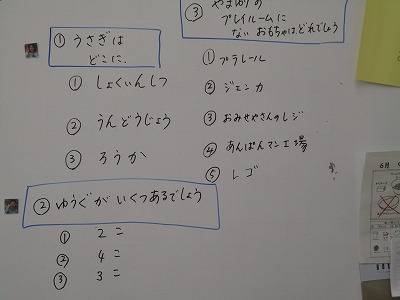 ① うさぎは
どこに.
① しょくいんしつ
② うんどうじょう
③ ろうか
② ゆうぐがいくつあるでしょう
① 2こ
② 4こ
③ 3こ
③ やまゆりの
プレイルームに
ない おもちゃはどれでしょう
① プラレール
② ジェンカ
③ おみせやさんのレジ
④ あんぱんマン工場
⑤ レゴ
6月